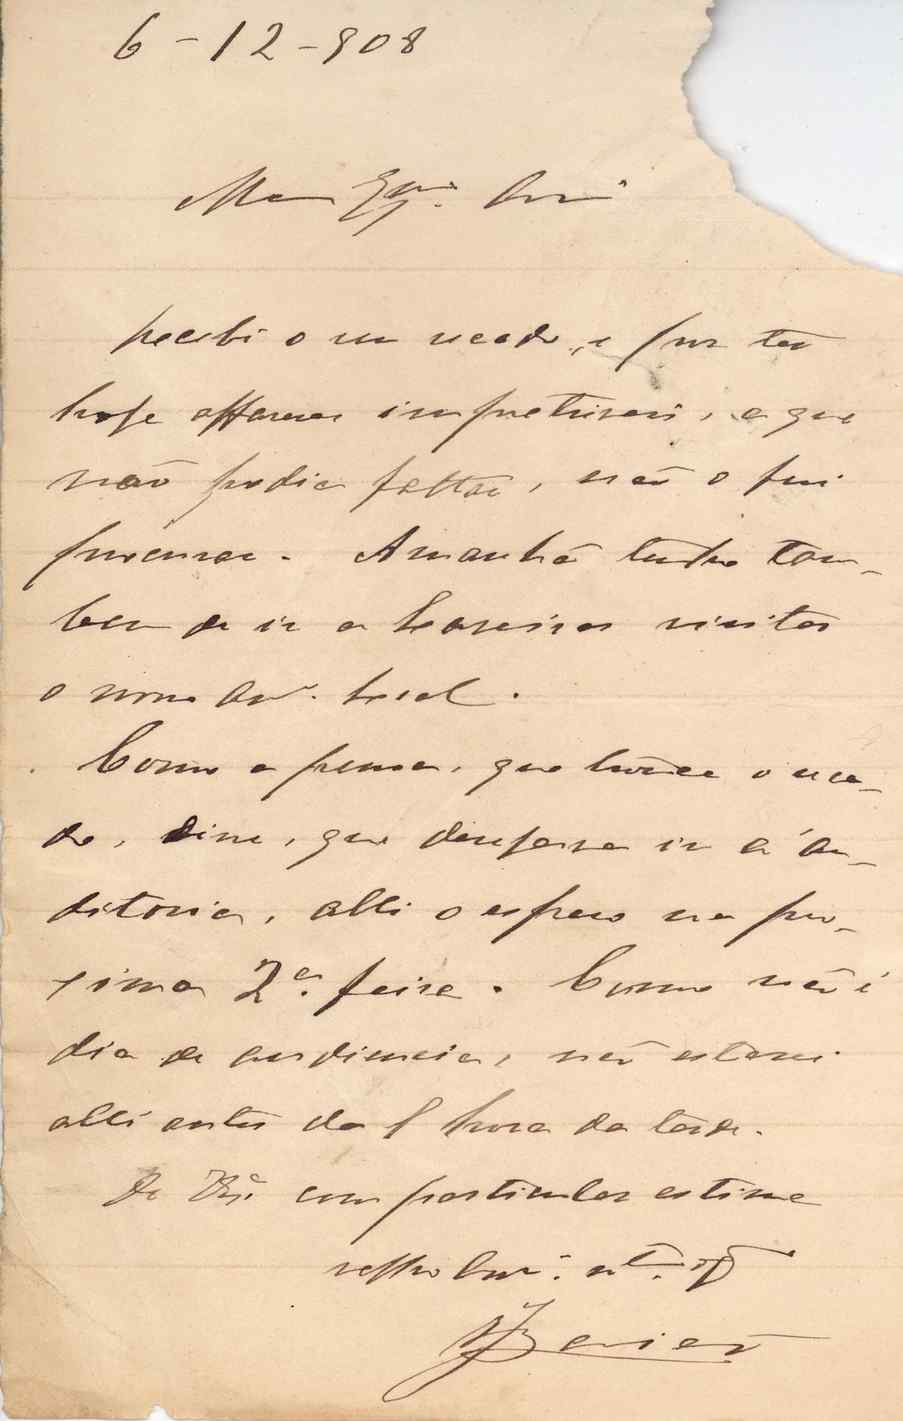 6-12-908
Meu Exmo. Amº
Recebi o seu recado, e por ter
hoje affazeres, a que
não podia faltar, não o fui
procurar. Amanhã tenho tam-
bem de ir a visitar
o nosso Amº. Leal.
Como a pessoa, que trouxe o reca-
do, disse, que desejava ir á au-
ditoria, alli o espero na pro-
xima 2ª. feira. Como não é
dia de audiencia, não estarei
alli antes da 1 hora da tarde.
De V. Exª com particular estima
Amº. attº. obº